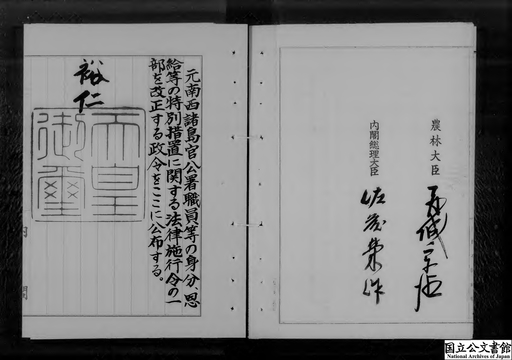 農林大臣
内閣総理大臣
佐藤榮作
元南西諸島官公署職員等の身分、恩
給等の特別措置に関する法律施行令の一
部を改正する政令をここに公布する。
裕仁
天皇
御璽
内閣
国立公文書館
National Archives of Japan